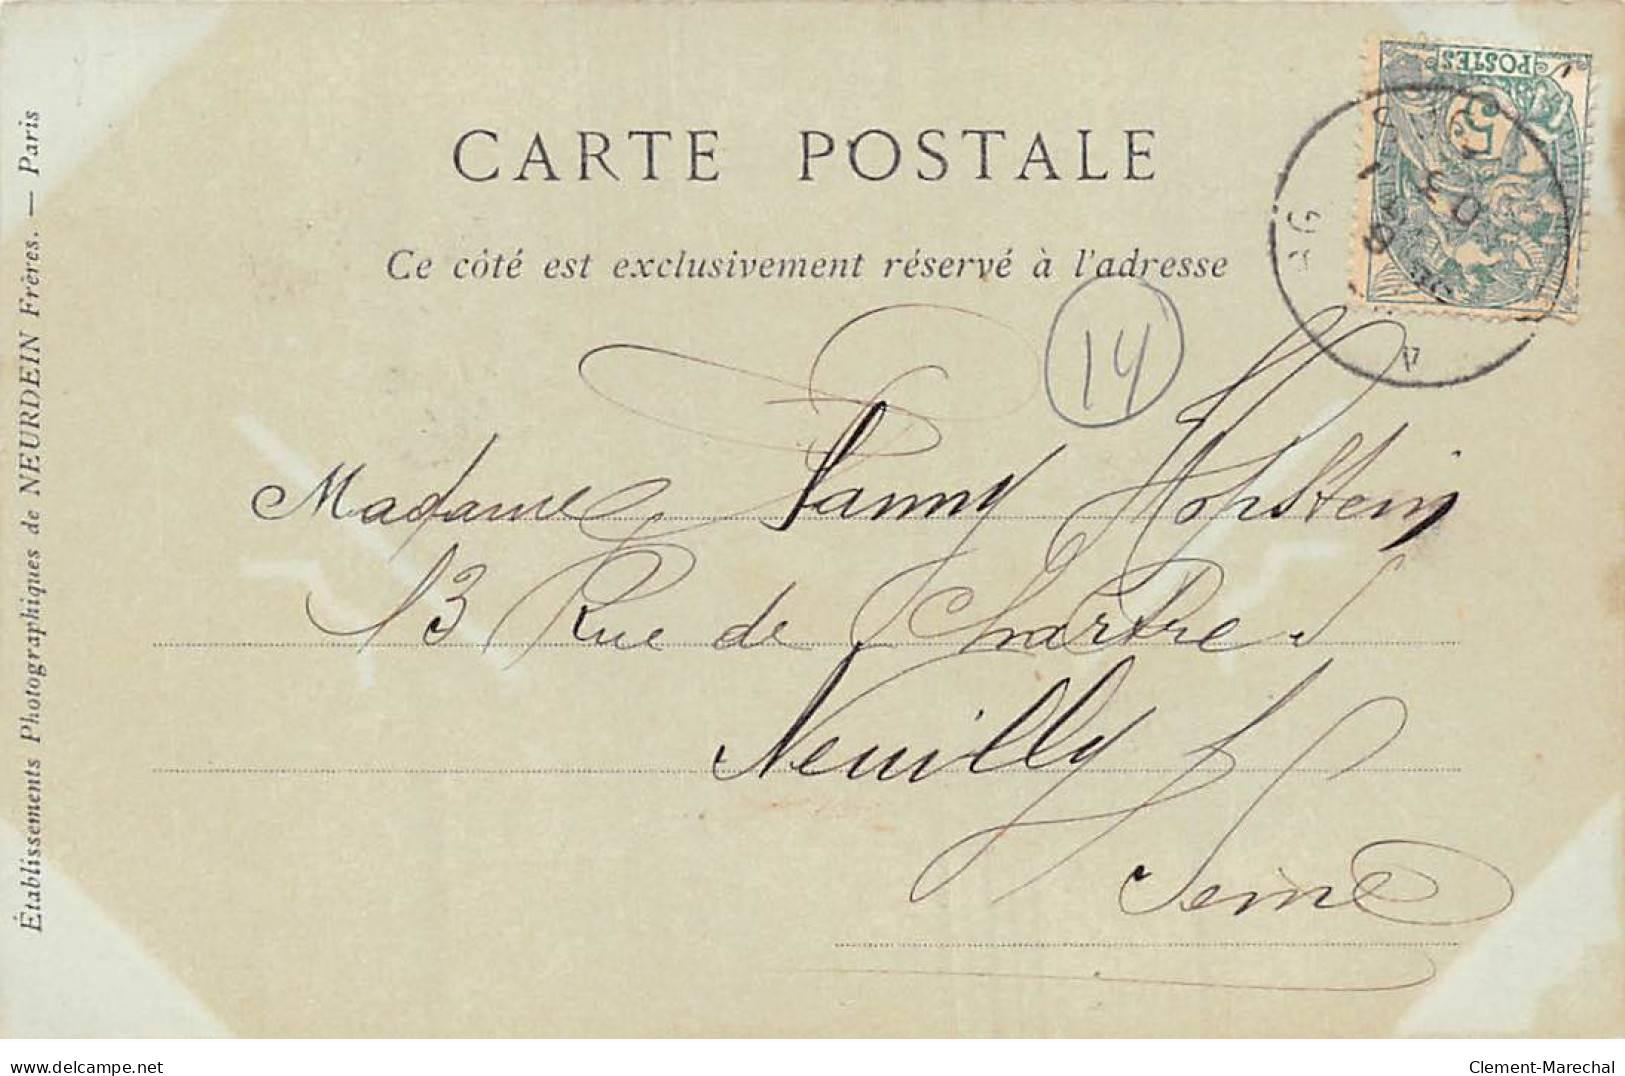 CARTE POSTALE
Ce côté est exclusivement réservé à l'adresse
14
Madame Fanny Hopstein
13 Rue de Chartres
Neuilly s/
Seine
Établissements Photographiques de NEURDEIN Frères. — Paris
POSTES
5
03
www.delcampe.net
Clement-Marechal